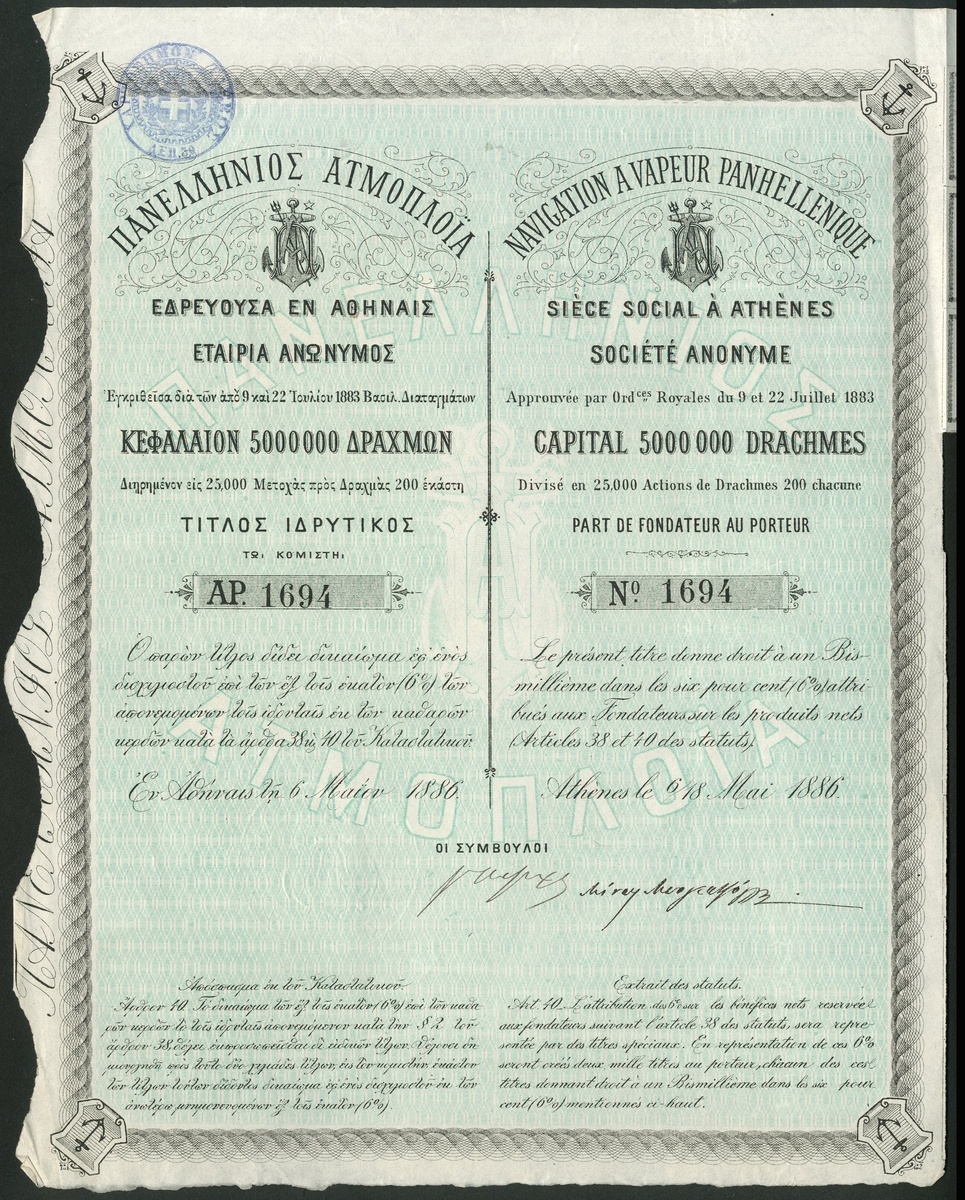 ΛΕΠ. 38
ΠΑΝΕΛΛΗΝΙΟΣ ΑΤΜΟΠΛΟΪΑ
ΕΔΡΕΥΟΥΣΑ ΕΝ ΑΘΗΝΑΙΣ
ΕΤΑΙΡΙΑ ΑΝΩΝΥΜΟΣ
Ἐγκριθεῖσα διὰ τῶν ἀπὸ 9 καὶ 22 Ἰουλίου 1883 Βασιλ. Διαταγμάτων
ΚΕΦΑΛΑΙΟΝ 5000000 ΔΡΑΧΜΩΝ
Διῃρημένον εἰς 25,000 Μετοχὰς πρὸς Δραχμὰς 200 ἑκάστη
ΤΙΤΛΟΣ ΙΔΡΥΤΙΚΟΣ
ΤΩι ΚΟΜΙΣΤΗι
ΑΡ. 1694
Ὁ παρὼν τίτλος δίδει δικαίωμα ἐφ' ἑνὸς
δισχιλιοστοῦ ἐπὶ τῶν ἓξ τοῖς ἑκατὸν (6%) τῶν
ἀπονεμομένων τοῖς ἱδρυταῖς ἐκ τῶν καθαρῶν
κερδῶν κατὰ τὰ ἄρθρα 38 κ 40 τοῦ Καταστατικοῦ
Ἐν Ἀθήναις τῇ 6 Μαΐου 1886.
NAVIGATION A VAPEUR PANHELLENIQUE
SIÈGE SOCIAL À ATHÈNES
SOCIÉTÉ ANONYME
Approuvée par Ord^ces Royales du 9 et 22 Juillet 1883
CAPITAL 5000000 DRACHMES
Divisé en 25,000 Actions de Drachmes 200 chacune
PART DE FONDATEUR AU PORTEUR
Nº 1694
Le présent titre donne droit à un Bis-
millième dans les six pour cent (6%) attri-
bués aux Fondateurs sur les produits nets
(Articles 38 et 40 des statuts).
Athènes le 6/18 Mai 1886.
ΟΙ ΣΥΜΒΟΥΛΟΙ
Ἀπόσπασμα ἐκ τοῦ Καταστατικοῦ.
Ἄρθρον 40. Τὸ δικαίωμα τῶν ἓξ τοῖς ἑκατὸν (6%) ἐπὶ τῶν καθα-
ρῶν κερδῶν τὸ τοῖς ἱδρυταῖς ἀπονεμόμενον κατὰ τὴν § 2 τοῦ
ἄρθρου 38,
τῶν τίτλων τούτων
ἀνωτέρω μνημονευομένων ἓξ τοῖς ἑκατὸν (6%).
Extrait des statuts.
Art. 40. L'attribution des 6% sur les bénéfices nets reservée
aux fondateurs suivant l'article 38 des statuts, sera repre-
sentée par des titres spéciaux. En représentation de ces 6%
seront créés deux mille titres au porteur, chacun des ces
titres donnant droit à un Bismillième dans les six pour
cent (6%) mentionnés ci-haut.
ΠΑΝΕΛΛΗΝΙΟΣ
ΑΤΜΟΠΛΟΪΑ